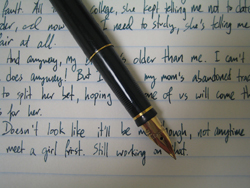 fault. All  college, she kept telling me not to dat
 old now I need to study, she's telling me
fair at all.
And anyway, my  's older than me. I can't
does anyway! But I  my mom's abandoned trad
to split her set, hoping  one of us will come th
for, her.
Doesn't look like it'll be me though, not anytime
meet a girl first. Still working on that.